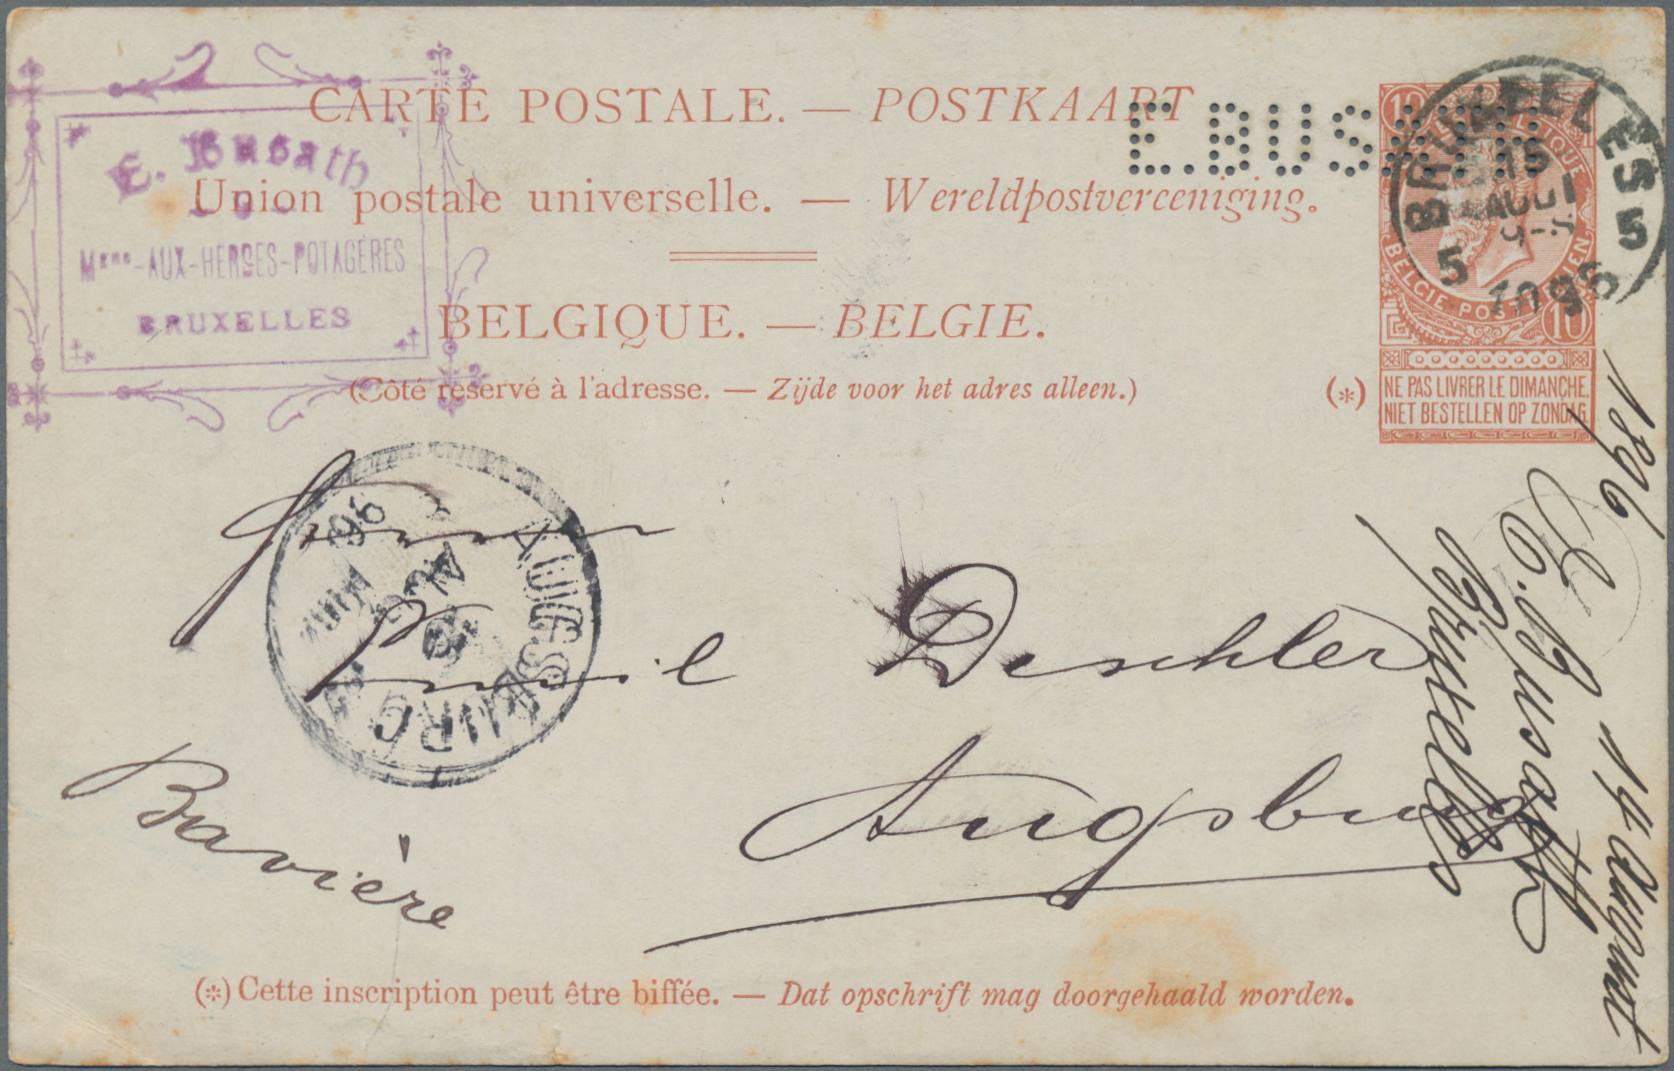 CARTE POSTALE. — POSTKAART
E.BUSATH
Union postale universelle. — Wereldpostvereeniging.
BELGIQUE. — BELGIE.
(Côté réservé à l'adresse. — Zijde voor het adres alleen.)
(*)
E. Busath
-AUX-HERBES-POTAGÈRES
BRUXELLES
10 10
BELGIQUE
BELGIE POSTERIJEN
10
NE PAS LIVRER LE DIMANCHE.
NIET BESTELLEN OP ZONDAG.
BRUXELLES 5
AOUT
5
1896
AUGSBURG
AUG
96
Emil Deschler
Augsburg
Bavière
1896
14 August
E. Busath
Bruxelles
(*) Cette inscription peut être biffée. — Dat opschrift mag doorgehaald worden.